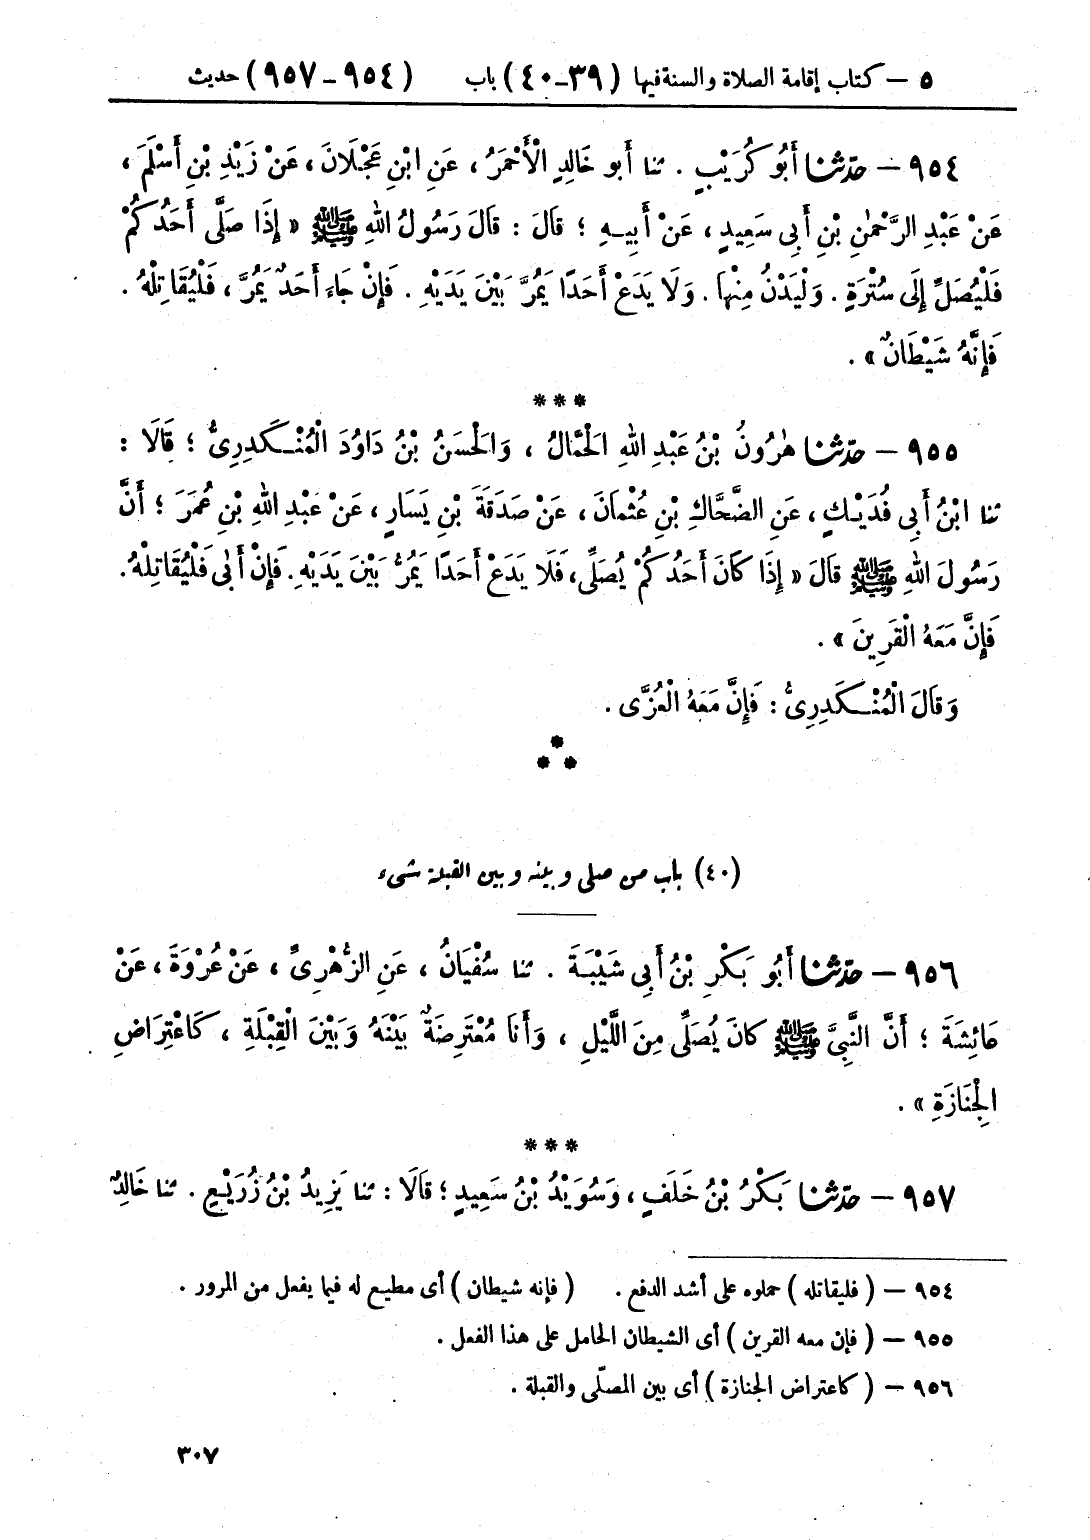 ٥ – كتاب إقامة الصلاة والسنة فيها (٣٩-٤٠) باب (٩٥٤-٩٥٧) حديث
٩٥٤ – حَدّثنا أَبُو كُرَيْبٍ . ثنا أَبو خَالِدٍ الْأَحْمَرُ ، عَنِ ابْنِ عَجْلَانَ ، عَنْ زَيْدِ بْنِ أَسْلَمَ ،
عَنْ عَبْدِ الرَّحْمٰنِ بْنِ أَبِي سَعِيدٍ ، عَنْ أَبِيهِ ؛ قَالَ : قَالَ رَسُولُ اللهِ ﷺ « إِذَا صَلَّى أَحَدُكُمْ
فَلْيُصَلِّ إِلَى سُتْرَةٍ . وَلْيَدْنُ مِنْهَا . وَلَا يَدَعْ أَحَدًا يَمُرُّ بَيْنَ يَدَيْهِ . فَإِنْ جَاءَ أَحَدٌ يَمُرُّ ، فَلْيُقَاتِلْهُ .
فَإِنَّهُ شَيْطَانٌ » .
***
٩٥٥ – حَدّثنا هٰرُونُ بْنُ عَبْدِ اللهِ الْحَمَّالُ ، وَالْحَسَنُ بْنُ دَاوُدَ الْمُنْكَدِرِىُّ ؛ قَالَا :
ثنا ابْنُ أَبِي فُدَيْكٍ ، عَنِ الضَّحَّاكِ بْنِ عُثْمَانَ ، عَنْ صَدَقَةَ بْنِ يَسَارٍ ، عَنْ عَبْدِ اللهِ بْنِ عُمَرَ ؛ أَنَّ
رَسُولَ اللهِ ﷺ قَالَ « إِذَا كَانَ أَحَدُكُمْ يُصَلِّى ، فَلَا يَدَعْ أَحَدًا يَمُرُّ بَيْنَ يَدَيْهِ . فَإِنْ أَبَى فَلْيُقَاتِلْهُ .
فَإِنَّ مَعَهُ الْقَرِينَ » .
وَقَالَ الْمُنْكَدِرِىُّ : فَإِنَّ مَعَهُ الْعُزَّى .
***
(٤٠) باب من صلى وبينه وبين القبلة شىء
٩٥٦ – حَدّثنا أَبُو بَكْرِ بْنُ أَبِي شَيْبَةَ . ثنا سُفْيَانُ ، عَنِ الزُّهْرِىِّ ، عَنْ عُرْوَةَ ، عَنْ
عَائِشَةَ ؛ أَنَّ النَّبِيَّ ﷺ كَانَ يُصَلِّى مِنَ اللَّيْلِ ، وَأَنَا مُعْتَرِضَةٌ بَيْنَهُ وَبَيْنَ الْقِبْلَةِ ، كَاعْتِرَاضِ
الْجِنَازَةِ » .
***
٩٥٧ – حَدّثنا بَكْرُ بْنُ خَلَفٍ ، وَسُوَيْدُ بْنُ سَعِيدٍ ؛ قَالَا : ثنا يَزِيدُ بْنُ زُرَيْعٍ . ثنا خَالِدٌ
٩٥٤ – ( فليقاتله ) حملوه على أشد الدفع . ( فإنه شيطان ) أى مطيع له فيما يفعل من المرور .
٩٥٥ – ( فإن معه القرين ) أى الشيطان الحامل على هذا الفعل .
٩٥٦ – ( كاعتراض الجنازة ) أى بين المصلّى والقبلة .
٣٠٧